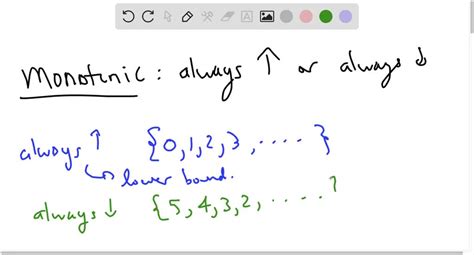 Monotonic : always ↑ or always ↓
always ↑ {0, 1, 2, 3, .... }
↳ lower bound.
always ↓ {5, 4, 3, 2, .... }